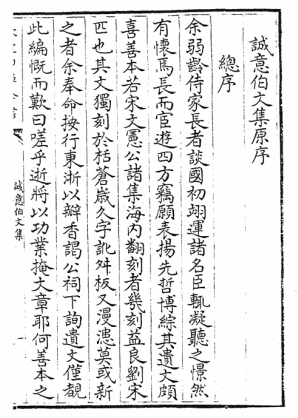 誠意伯文集原序
總序
余弱齡侍家長者談國初翊運諸名臣輒凝聽之憬然
有懷焉長而宦遊四方竊願表揚先哲博綜其遺文頗
喜善本若宋文憲公諸集海内翻刻者幾刻益良劉宋
匹也其文獨刻於括蒼嵗久字訛舛板又漫漶莫或新
之者余奉命按行東浙以瓣香謁公祠下詢遺文僅覩
此編慨而歎曰嗟乎逝將以功業掩大章耶何善本之
誠意伯文集